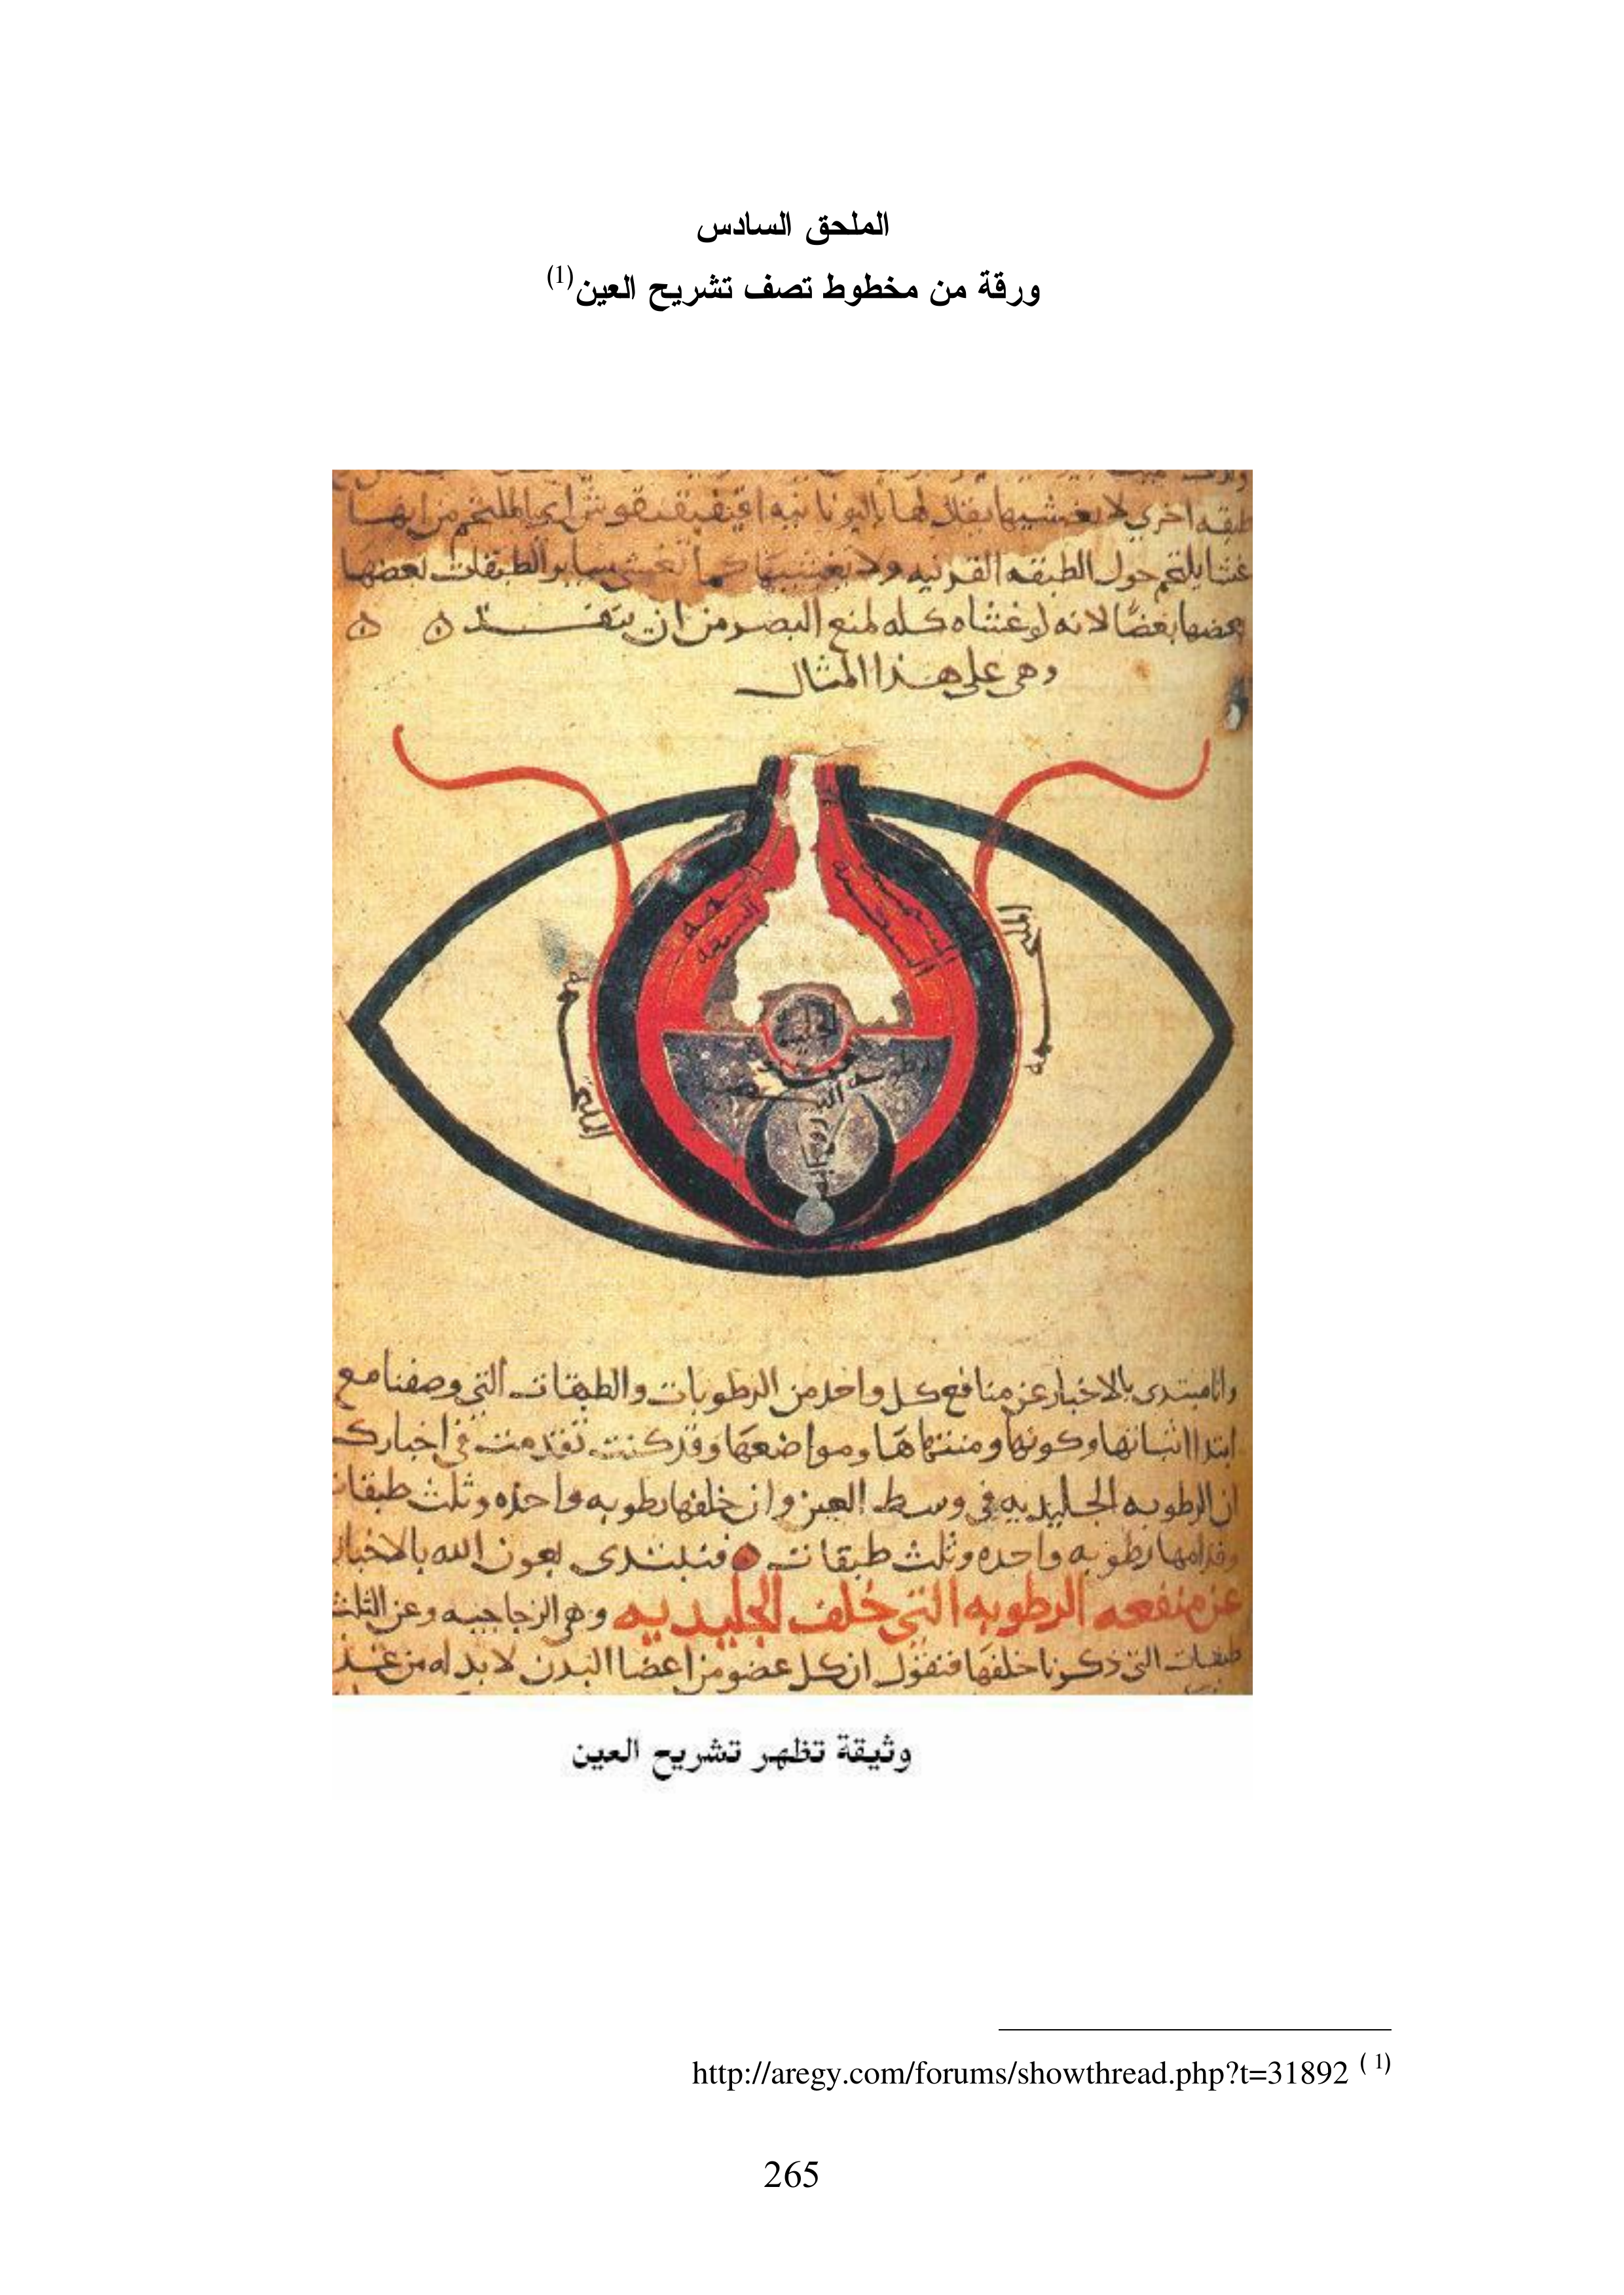 الملحق السادس
ورقة من مخطوط تصف تشريح العين(1)
طبقه اخري لا يغشيها يقال لها باليونانيه اي الملتحم من انها
غشا يلتحم حول الطبقه القرنيه ولا يغشيها كما تغشي ساير الطبقات بعضها
بعضها بعضا لانه لو غشاه كله لمنع البصر من ان ينفذ ه ه
وهي على هذا المثال
الملتحمه
الجليديه
وانا مبتدى بالاخبار عن منافع كل واحد من الرطوبات والطبقات التي وصفنا مع
ابتدا اثباتها وكونها ومنتهاها ومواضعها وقد كنت تقدمت في اخبارك
ان الرطوبه الجليديه في وسط العين وان خلفها رطوبه واحده وثلث طبقات
وقدامها رطوبه واحده وثلث طبقات فنبتدى بعون الله بالاخبار
عن منفعه الرطوبه التي خلف الجليديه وهي الزجاجيه وعن الثلث
طبقات التي ذكرنا خلفها فنقول ان كل عضو من اعضا البدن لا بد له من غذ
وثيقة تظهر تشريح العين
http://aregy.com/forums/showthread.php?t=31892 ( 1)
265